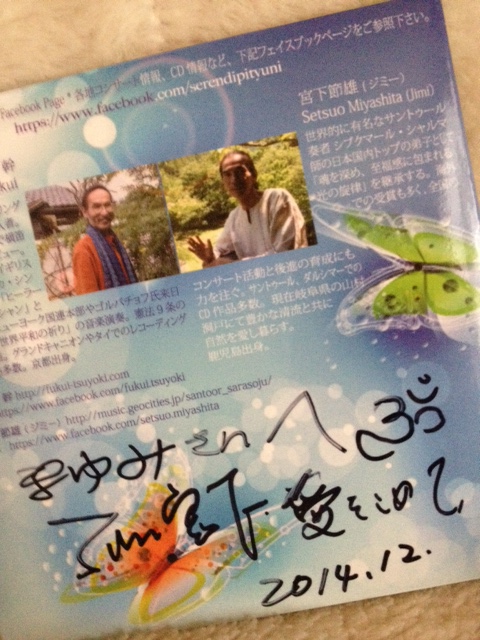 Facebook Page * 各種コンサート情報、CD情報など、下記フェイスブックページをご参照下さい。
https://www.facebook.com/serendipityuni
宮下節雄 (ジミー)
Setsuo Miyashita (Jimi)
世界的に有名なサントゥール
奏者シブクマール・シャルマ
師の日本国内トップの弟子とし
「魂を深め、至福感に包まれる
の旋律」を継承する。海外
の受賞も多く、全国
コンサート活動と後進の育成にも
力を注ぐ。サントゥール、ダルシマーでの
CD作品多数。現在岐阜県の山村
瀬戸にて豊かな清流と共に
自然を愛し暮らす。
鹿児島出身。
幹
kui
ニューヨーク国連本部やゴルバチョフ氏来日
世界平和の祈り」の音楽演奏。憲法9条の
グランドキャニオンやタイでのレコーディング
多数。京都出身。
幹 http://fukui-tsuyoki.com
https://www.facebook.com/fukui.tsuyoki
節雄 (ジミー) http://music.geocities.jp/santoor_sarasoju/
https://www.facebook.com/setsuo.miyashita
まゆみさんへ
Jimi 宮下 愛をこめて
2014.12.